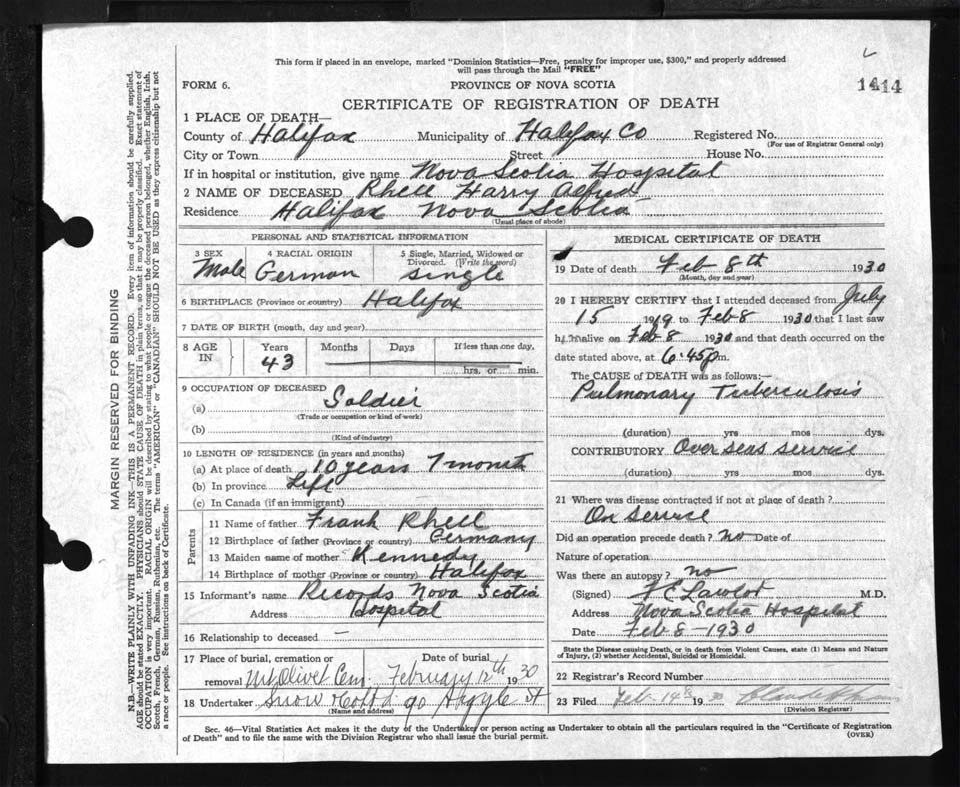 This form if placed in an envelope, marked "Dominion Statistics—Free, penalty for improper use, $300," and properly addressed
will pass through the Mail "FREE"
FORM 6.
PROVINCE OF NOVA SCOTIA
1414
CERTIFICATE OF REGISTRATION OF DEATH
1 PLACE OF DEATH—
County of Halifax Municipality of Halifax Co Registered No.
(For use of Registrar General only)
City or Town Street House No.
If in hospital or institution, give name Nova Scotia Hospital
2 NAME OF DECEASED Rhell Harry Alfred
Residence Halifax Nova Scotia
(Usual place of abode)
PERSONAL AND STATISTICAL INFORMATION
3 SEX 4 RACIAL ORIGIN 5 Single, Married, Widowed or
Divorced. (Write the word)
Male German single
6 BIRTHPLACE (Province or country) Halifax
7 DATE OF BIRTH (month, day and year)
8 AGE IN Years Months Days If less than one day,
43 hrs. or min.
9 OCCUPATION OF DECEASED
(a) Soldier
(Trade or occupation or kind of work)
(b)
(Kind of industry)
10 LENGTH OF RESIDENCE (in years and months)
(a) At place of death 10 years 7 month
(b) In province Life
(c) In Canada (if an immigrant)
Parents
11 Name of father Frank Rhell
12 Birthplace of father (Province or country) Germany
13 Maiden name of mother Kennedy
14 Birthplace of mother (Province or country) Halifax
15 Informant's name Records Nova Scotia
Address Hospital
16 Relationship to deceased —
17 Place of burial, cremation or Date of burial
removal Mt Olivet Cem. February 12th 1930
18 Undertaker Snow & Co Ltd 90 Argyle St
(Name and address)
MEDICAL CERTIFICATE OF DEATH
19 Date of death Feb 8th 1930
(Month, day and year)
20 I HEREBY CERTIFY that I attended deceased from July
15 1919 to Feb 8 1930 that I last saw
him alive on Feb 8 1930 and that death occurred on the
date stated above, at 6.45 p m.
The CAUSE of DEATH was as follows:—
Pulmonary Tuberculosis
(duration) yrs mos dys.
CONTRIBUTORY Over seas service
(duration) yrs mos dys.
21 Where was disease contracted if not at place of death?
On Service
Did an operation precede death? no Date of
Nature of operation
Was there an autopsy? no
(Signed) F E Lawlor M.D.
Address Nova Scotia Hospital
Date Feb 8-1930
State the Disease causing Death, or in death from Violent Causes, state (1) Means and Nature
of Injury, (2) whether Accidental, Suicidal or Homicidal.
22 Registrar's Record Number
23 Filed Feb 14th 1930
(Division Registrar)
Sec. 46—Vital Statistics Act makes it the duty of the Undertaker or person acting as Undertaker to obtain all the particulars required in the "Certificate of Registration
of Death" and to file the same with the Division Registrar who shall issue the burial permit.
(OVER)
MARGIN RESERVED FOR BINDING
N.B.—WRITE PLAINLY WITH UNFADING INK—THIS IS A PERMANENT RECORD. Every item of information should be carefully supplied.
AGE should be stated EXACTLY. PHYSICIANS should STATE CAUSE OF DEATH in plain terms, so that it may be properly classified. Exact statement of
OCCUPATION is very important. RACIAL ORIGIN will be described by stating to what people or tongue the deceased person belonged, whether English, Irish,
Scotch, French, German, Russian, Ruthenian, etc. The terms "AMERICAN" or "CANADIAN" SHOULD NOT BE USED as they express citizenship but not
a race or people. See instructions on back of Certificate.